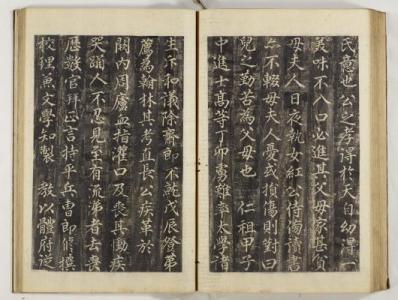 氏意也公之孝得於天自幼得一
美味不入口必進其父母家甚貧
母夫人日夜執女紅公侍傍讀書
亦不輟母夫人憂或損傷則對曰
兒之勤苦為父母也 仁祖甲子
中進士高等丁卯虜難率太學諸
生斥和議除齋郎不就戊辰登第
薦為翰林其考直長公疾革於
關內周盧血指灌口及喪其慟疾
哭踊人不忍見至有流涕者去喪
歷數官拜正言持平兵曹郎修撰
校理兼文學知製 教以體府從